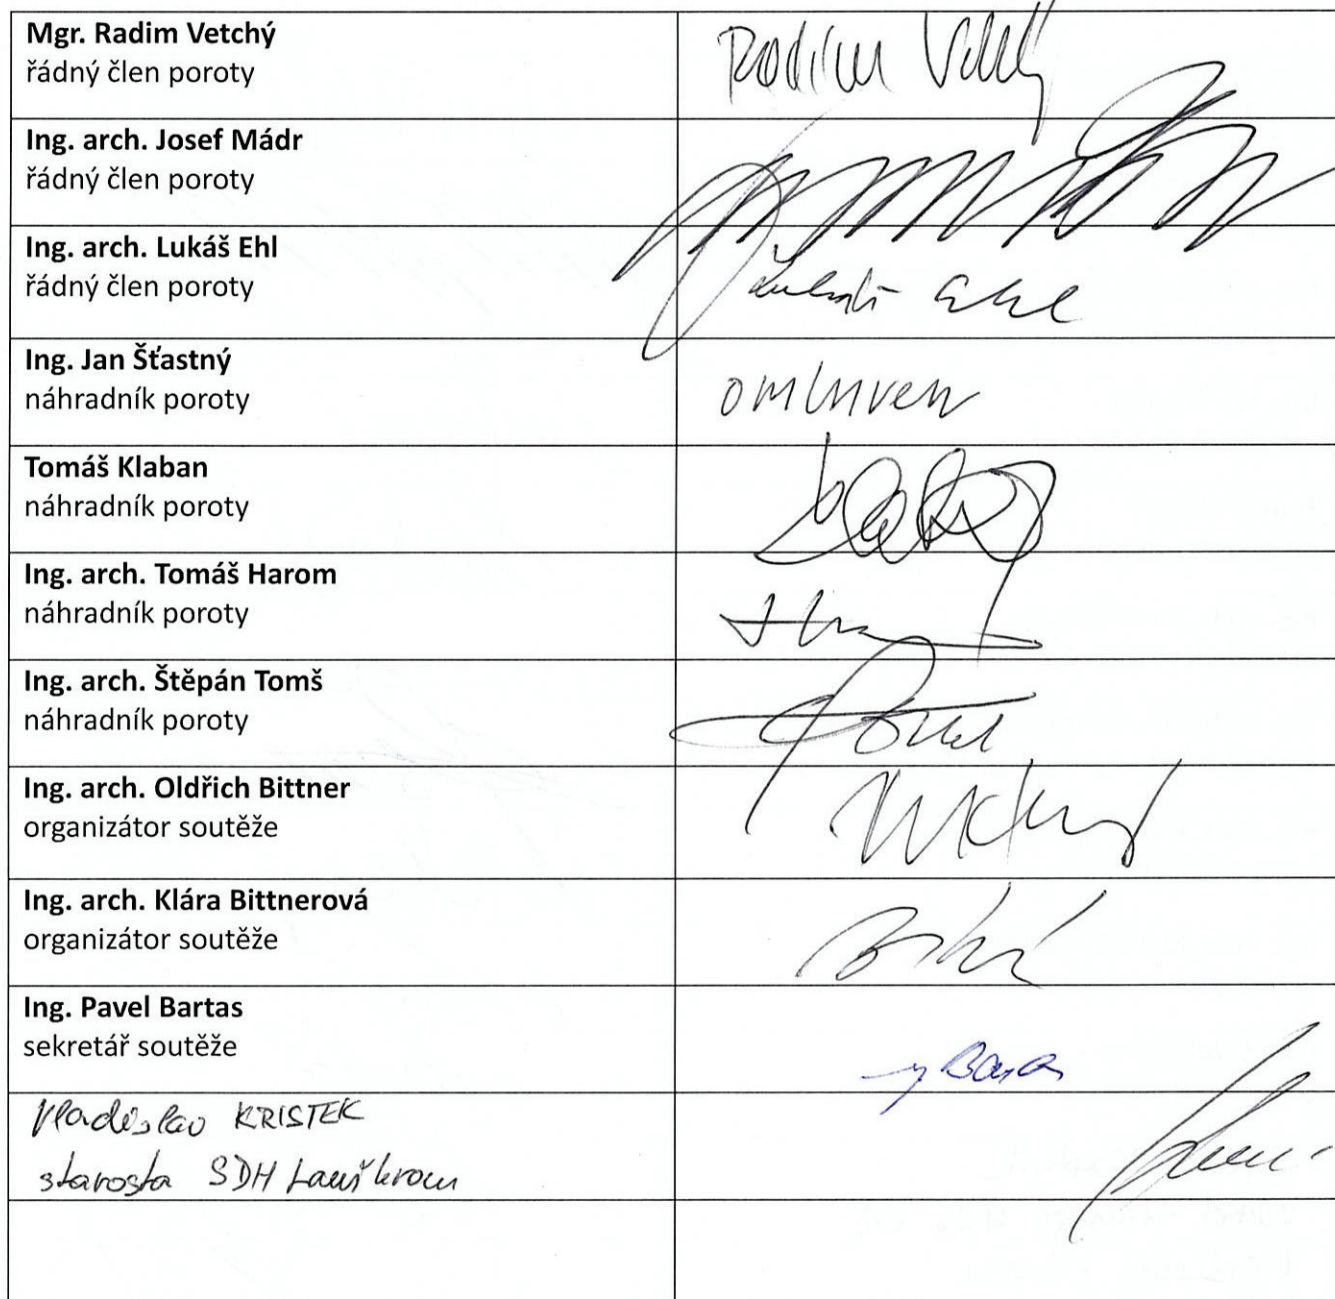 Mgr. Radim Vetchý
řádný člen poroty
Radim Vetchý
Ing. arch. Josef Mádr
řádný člen poroty
Ing. arch. Lukáš Ehl
řádný člen poroty
Lukáš Ehl
Ing. Jan Šťastný
náhradník poroty
omluven
Tomáš Klaban
náhradník poroty
Ing. arch. Tomáš Harom
náhradník poroty
Ing. arch. Štěpán Tomš
náhradník poroty
Ing. arch. Oldřich Bittner
organizátor soutěže
Ing. arch. Klára Bittnerová
organizátor soutěže
Ing. Pavel Bartas
sekretář soutěže
Vladislav KRISTEK
starosta SDH Lanškroun